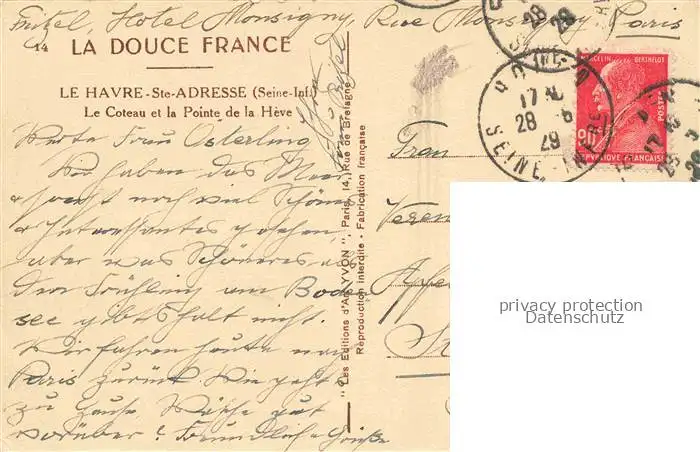 Fritel, Hotel Monsigny, Rue Monsigny, Paris
14 LA DOUCE FRANCE
LE HAVRE-Ste-ADRESSE (Seine-Inf.)
Le Coteau et la Pointe de la Hève
Werte Frau Osterling
Wir haben das Meer
sonst noch viel Schönes
Interessantes gesehen,
aber was Schöneres als
den Frühling am Boden-
see gibt's halt nicht.
Wir fahren heute nach
Paris zurück. Wie geht
zu Hause. Wäsche gut
vorüber? Freundliche Grüße
"Les Editions d'Art YVON", Paris, 14, Rue de Bretagne
Reproduction interdite - Fabrication française
Frau
Veren
BERTHELOT
POSTES
RÉPUBLIQUE FRANÇAISE
17
28 - 6
29
SEINE-INF
privacy protection
Datenschutz